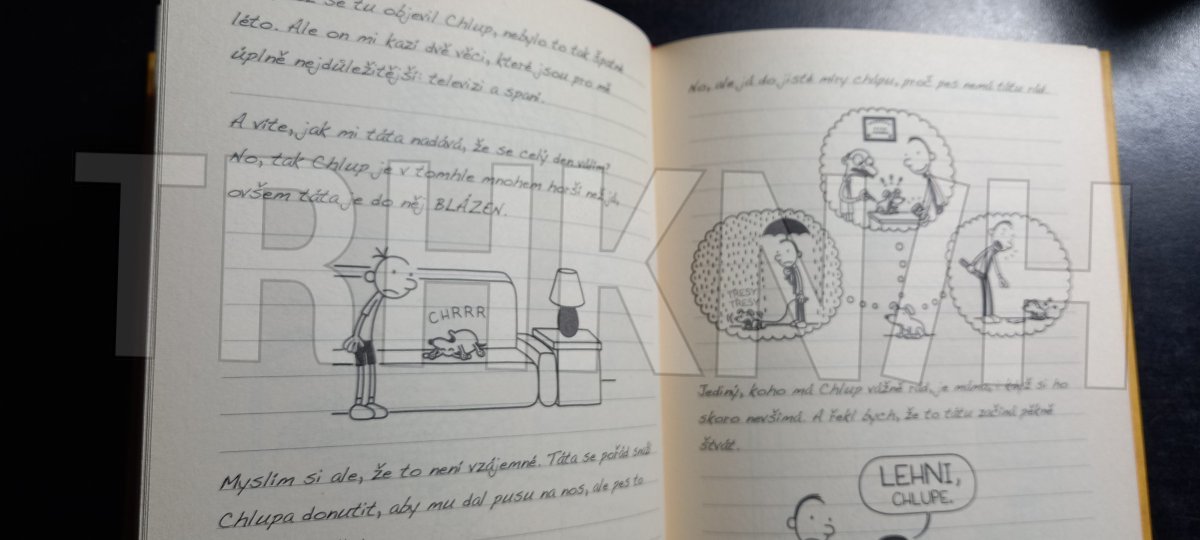 se tu objevil Chlup, nebylo to tak špatné
léto. Ale on mi kazí dvě věci, které jsou pro mě
úplně nejdůležitější: televizi a spaní.
A víte, jak mi táta nadává, že se celý den válím?
No, tak Chlup je v tomhle mnohem horší než já,
ovšem táta je do něj BLÁZEN.
CHRRR
Myslím si ale, že to není vzájemné. Táta se pořád snaží
Chlupa donutit, aby mu dal pusu na nos, ale pes to
No, ale já do jisté míry chápu, proč pes nemá tátu rád.
TŘESY
TŘESY
Jediný, koho má Chlup vážně rád, je máma, i když si ho
skoro nevšímá. A řekl bych, že to tátu začíná pěkně
štvát.
LEHNI,
CHLUPE.
TRHKNIH